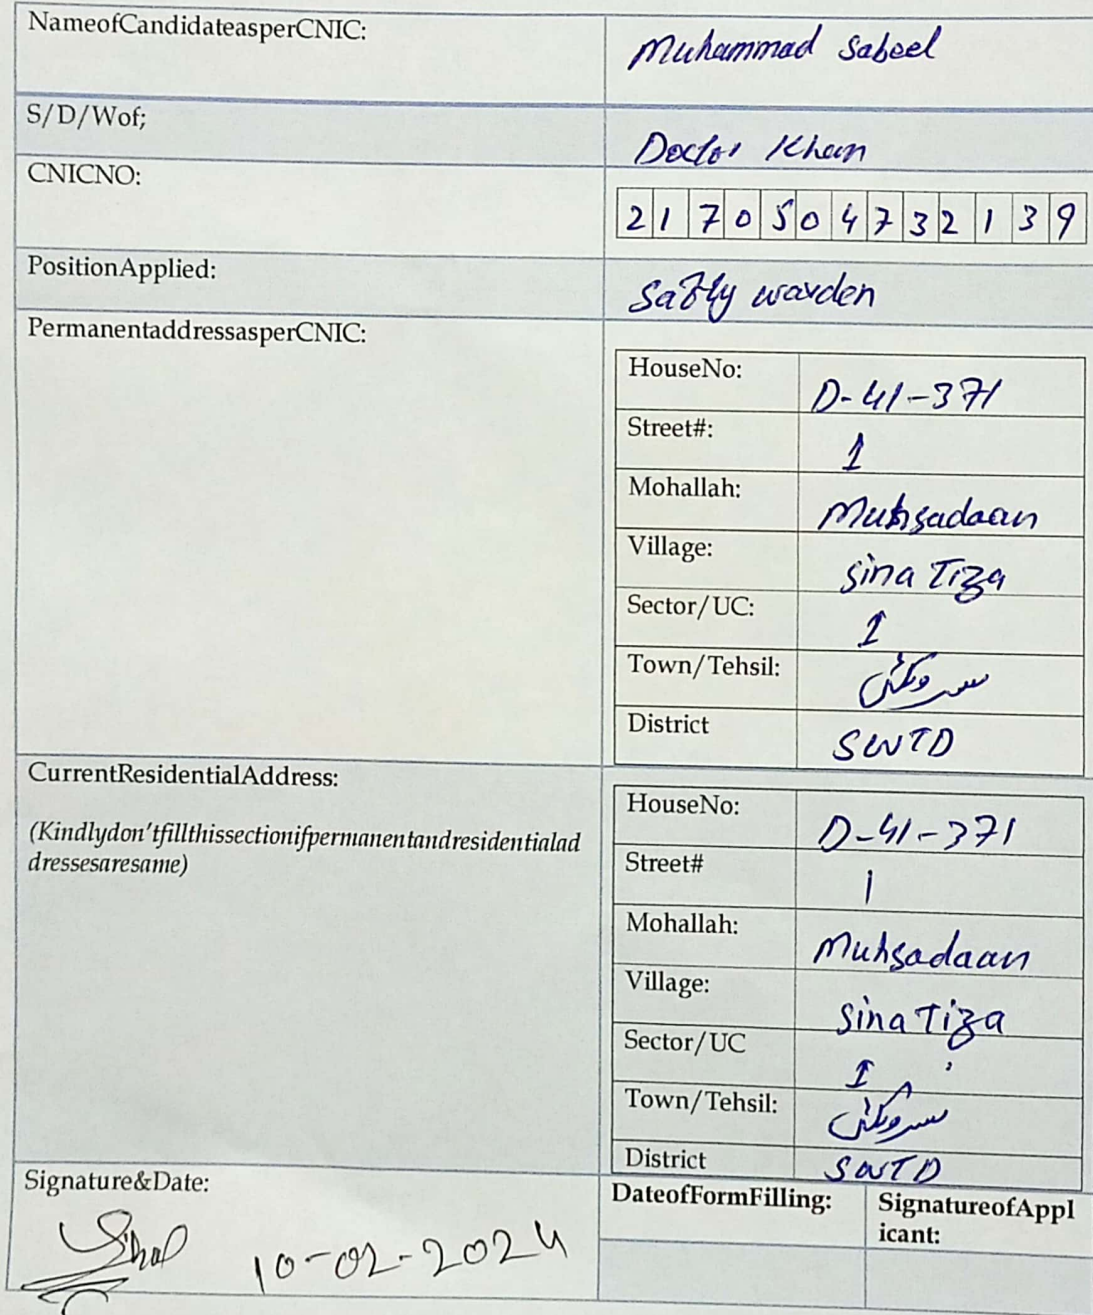 NameofCandidateasperCNIC: Muhammad Sabeel
S/D/Wof; Doctor Khan
CNICNO: 2170504732139
PositionApplied: Safty warden
PermanentaddressasperCNIC:
HouseNo: D-41-371
Street#: 1
Mohallah: Muhsadaan
Village: Sina Tiza
Sector/UC: 1
Town/Tehsil: سروکئی
District SWTD
CurrentResidentialAddress:
(Kindlydon'tfillthissectionifpermanentandresidentialad
dressesaresame)
HouseNo: D-41-371
Street# 1
Mohallah: Muhsadaan
Village: Sina Tiza
Sector/UC 1
Town/Tehsil: سروکئی
District SWTD
Signature&Date: 10-02-2024
DateofFormFilling: SignatureofAppl
icant: